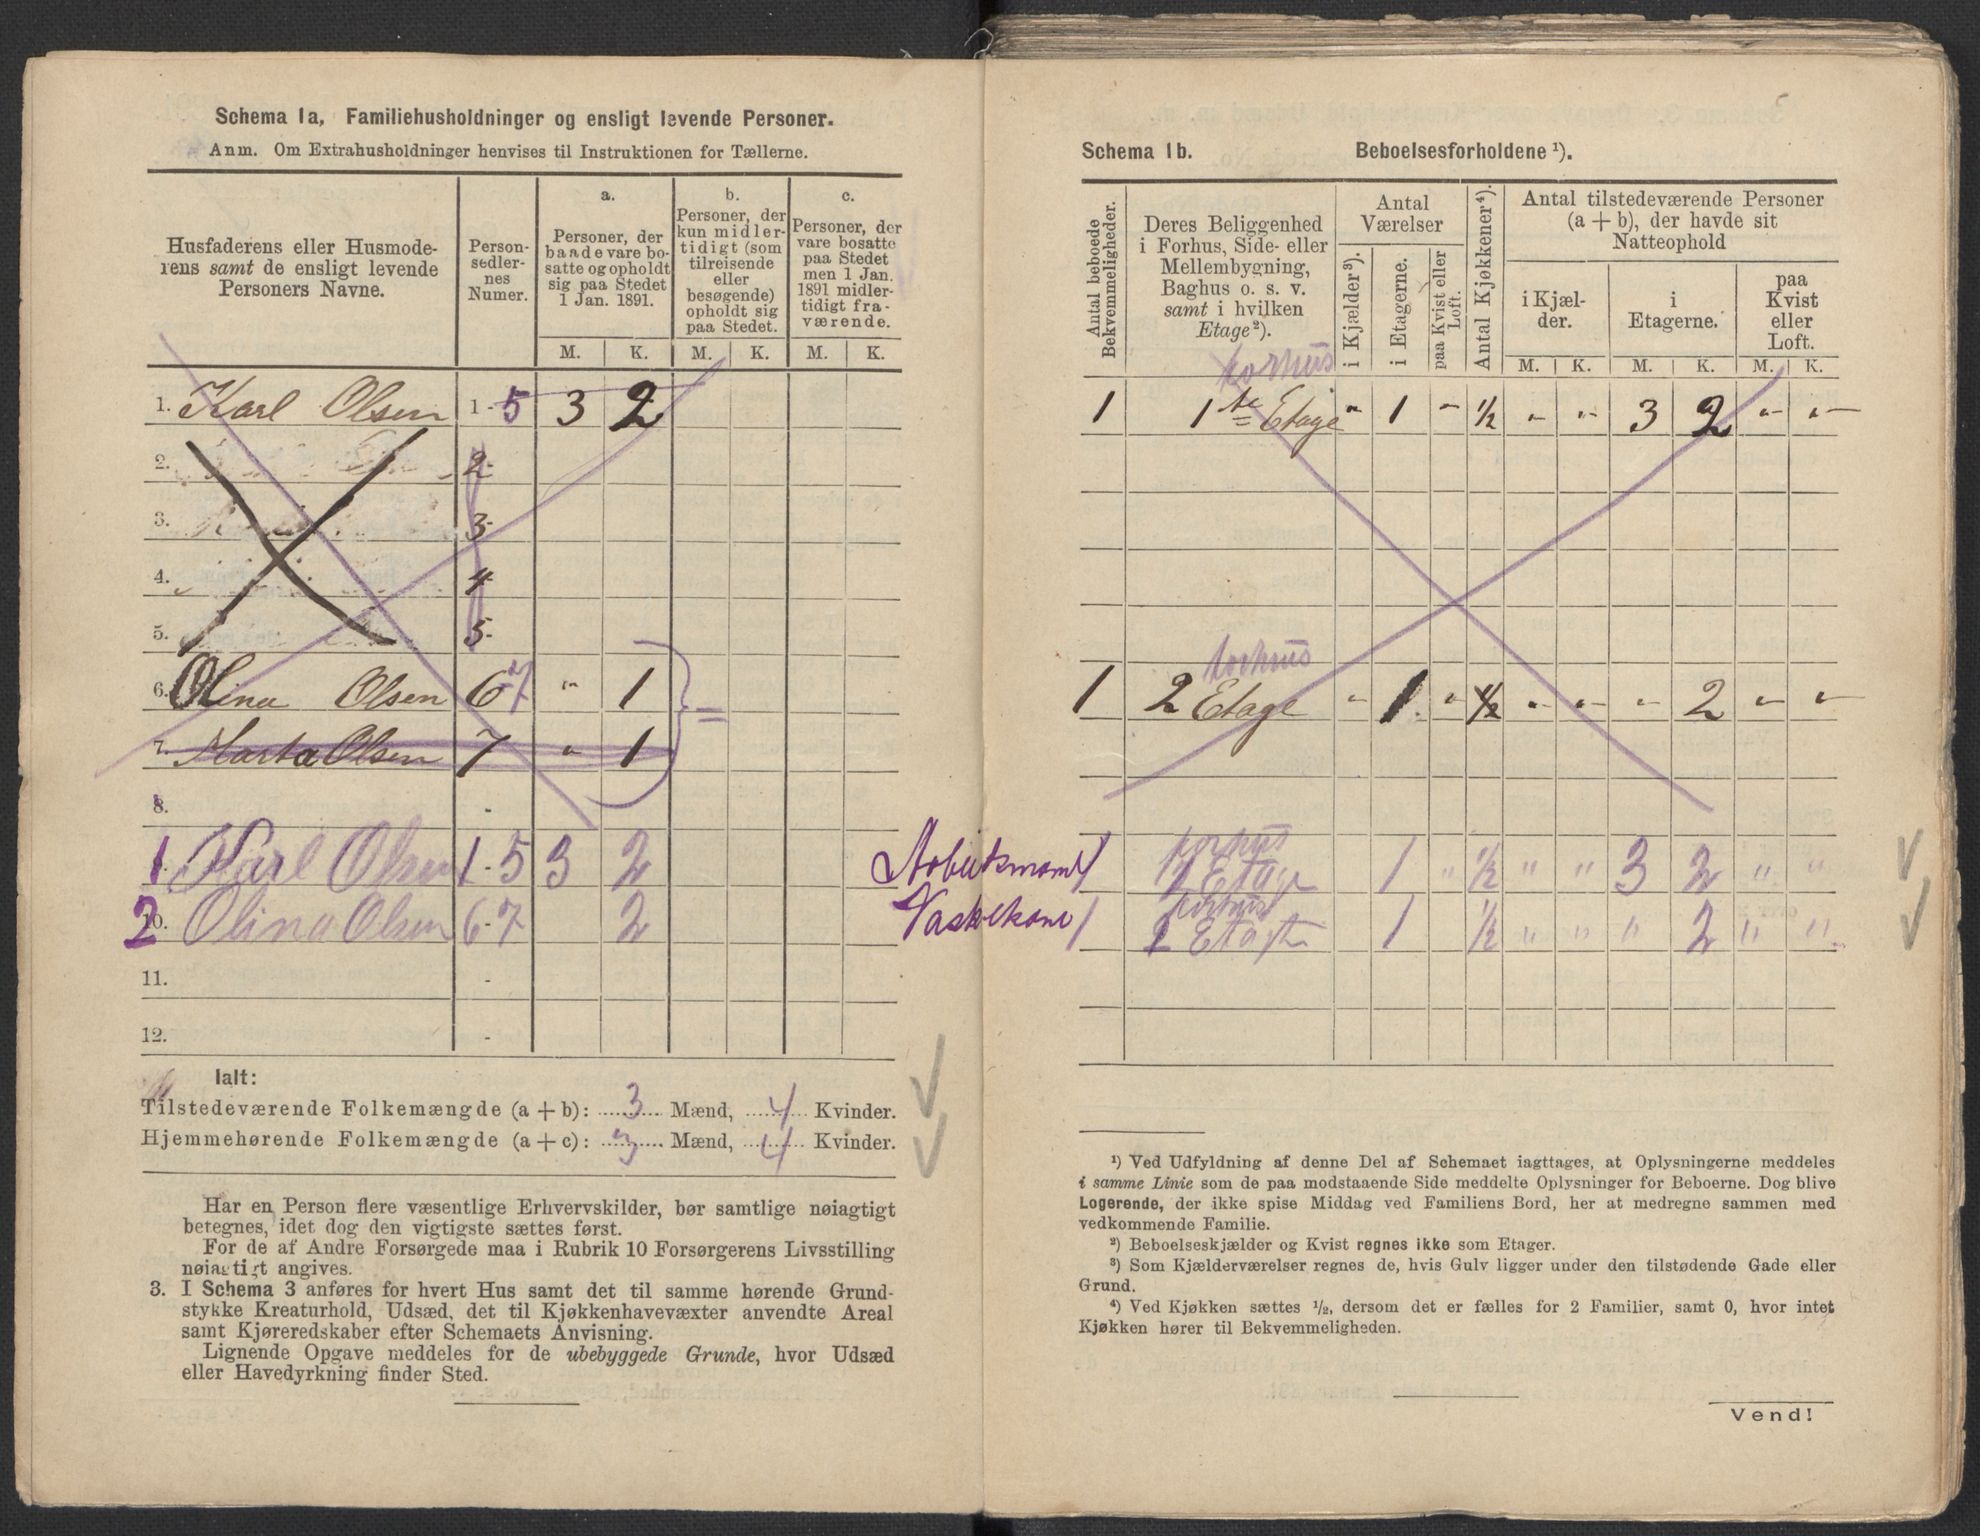 Schema 1a, Familiehusholdninger og ensligt levende Personer.
Anm. Om Extrahusholdninger henvises til Instruktionen for Tællerne.
Husfaderens eller Husmode-
rens samt de ensligt levende
Personers Navne.
Person-
sedler-
nes
Numer.
a.
Personer, der
baade vare bo-
satte og opholdt
sig paa Stedet
1 Jan. 1891.
b.
Personer, der
kun midler-
tidigt (som
tilreisende
eller
besøgende)
opholdt sig
paa Stedet.
c.
Personer, der
vare bosatte
paa Stedet
men 1 Jan.
1891 midler-
tidigt fra-
værende.
M. K. M. K. M. K.
1. Karl Olsen 1-5 3 2
2. 2-
3. 3-
4. 4-
5. 5-
6. Olina Olsen 6-7 " 1
7. Marta Olsen 7 " 1
8. -
1. Karl Olsen 1-5 3 2
2 10. Olina Olsen 6-7 2
11. -
12. -
Ialt:
Tilstedeværende Folkemængde (a + b): 3 Mænd, 4 Kvinder.
Hjemmehørende Folkemængde (a + c): 3 Mænd, 4 Kvinder.
Har en Person flere væsentlige Erhvervskilder, bør samtlige nøiagtigt
betegnes, idet dog den vigtigste sættes først.
For de af Andre Forsørgede maa i Rubrik 10 Forsørgerens Livsstilling
nøiagtigt angives.
3. I Schema 3 anføres for hvert Hus samt det til samme hørende Grund-
stykke Kreaturhold, Udsæd, det til Kjøkkenhavevæxter anvendte Areal
samt Kjøreredskaber efter Schemaets Anvisning.
Lignende Opgave meddeles for de ubebyggede Grunde, hvor Udsæd
eller Havedyrkning finder Sted.
Schema 1b. Beboelsesforholdene ¹).
Antal beboede
Bekvemmeligheder.
Deres Beliggenhed
i Forhus, Side- eller
Mellembygning,
Baghus o. s. v.
samt i hvilken
Etage ²).
Antal
Værelser
i Kjælder ³).
i Etagerne.
paa Kvist eller
Loft.
Antal Kjøkkener ⁴).
Antal tilstedeværende Personer
(a + b), der havde sit
Natteophold
i Kjæl-
der.
i
Etagerne.
paa
Kvist
eller
Loft.
M. K. M. K. M. K.
forhus
1 1te Etage " 1 " ½ " " 3 2 " "
forhus
1 2 Etage " 1 " ½ " " " 2 " "
forhus
Arbeidsmand 1 1 Etage 1 " ½ " " 3 2 " "
forhus
Vaskekone 1 2 Etage 1 ½ " " " 2 " "
¹) Ved Udfyldning af denne Del af Schemaet iagttages, at Oplysningerne meddeles
i samme Linie som de paa modstaaende Side meddelte Oplysninger for Beboerne. Dog blive
Logerende, der ikke spise Middag ved Familiens Bord, her at medregne sammen med
vedkommende Familie.
²) Beboelseskjælder og Kvist regnes ikke som Etager.
³) Som Kjælderværelser regnes de, hvis Gulv ligger under den tilstødende Gade eller
Grund.
⁴) Ved Kjøkken sættes ½, dersom det er fælles for 2 Familier, samt 0, hvor intet
Kjøkken hører til Bekvemmeligheden.
Vend!